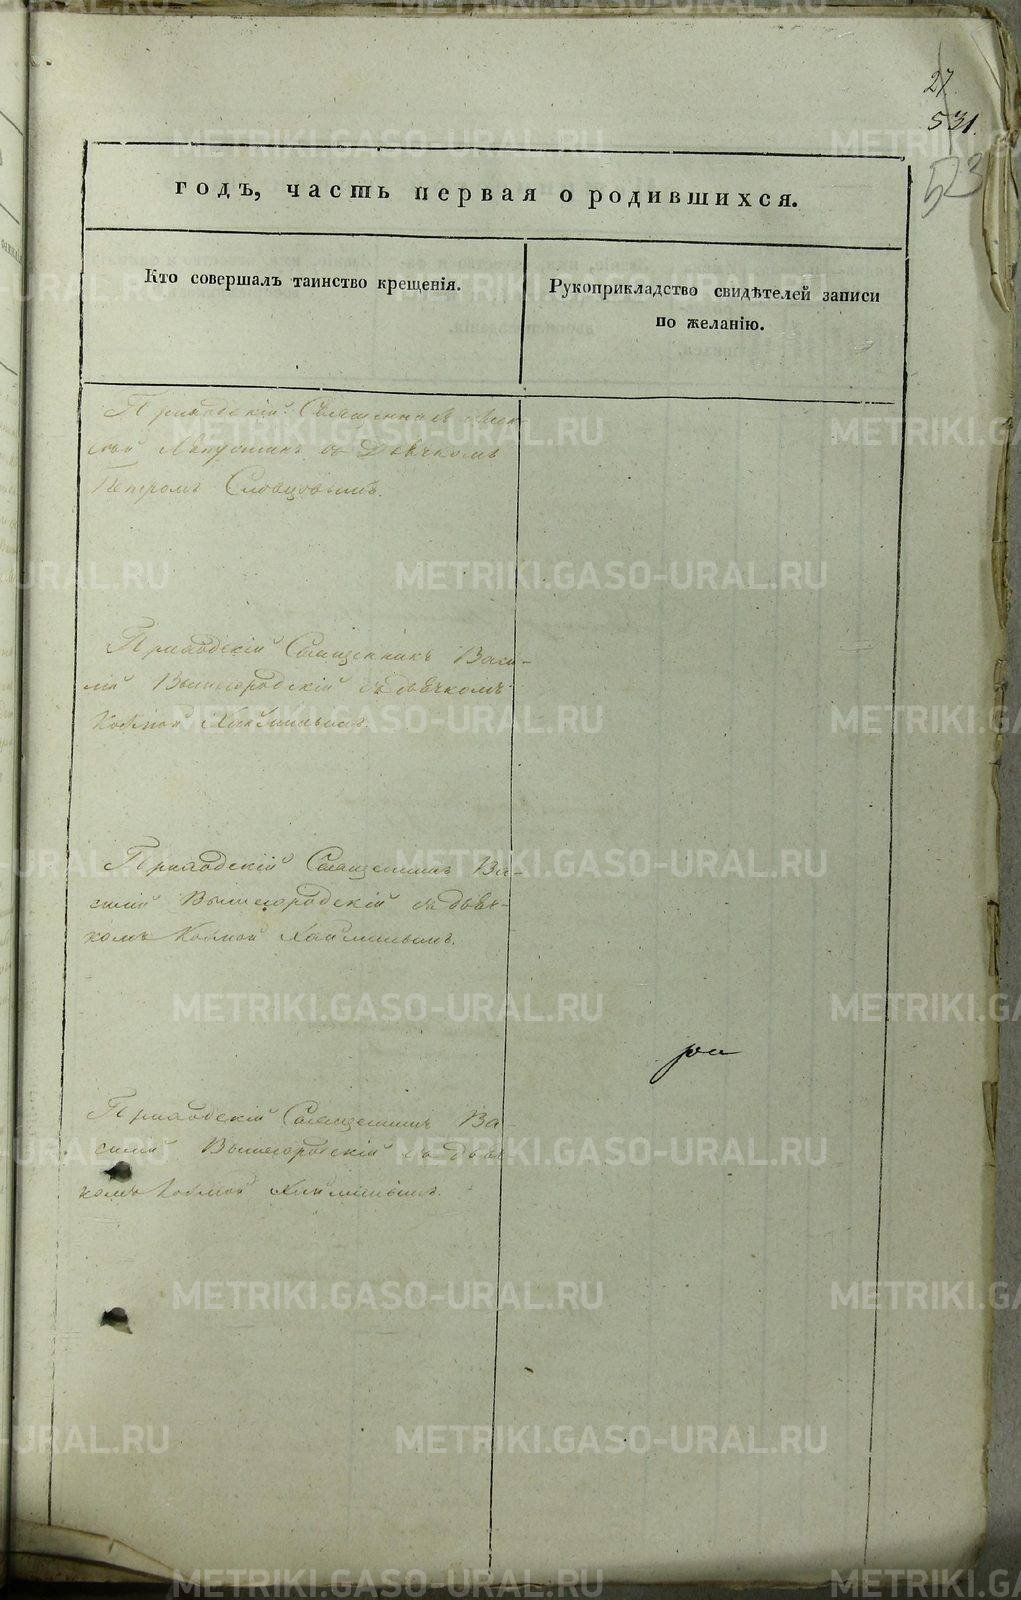 27
531.
523
годъ, часть первая о родившихся.
Кто совершалъ таинство крещенія.
Рукоприкладство свидѣтелей записи
по желанію.
Приходскій Священникъ
Лапустинъ съ Дьячкомъ
Петромъ Словцовымъ.
Приходскій Священникъ Васи-
лій Вышегородскій съ дьячкомъ
Козмой
Приходскій Священникъ Ва-
силій Вышегородскій съ дьяч-
комъ Козмой
Приходскій Священникъ Ва-
силій Вышегородскій съ дьяч-
комъ Козмой
METRIKI.GASO-URAL.RU